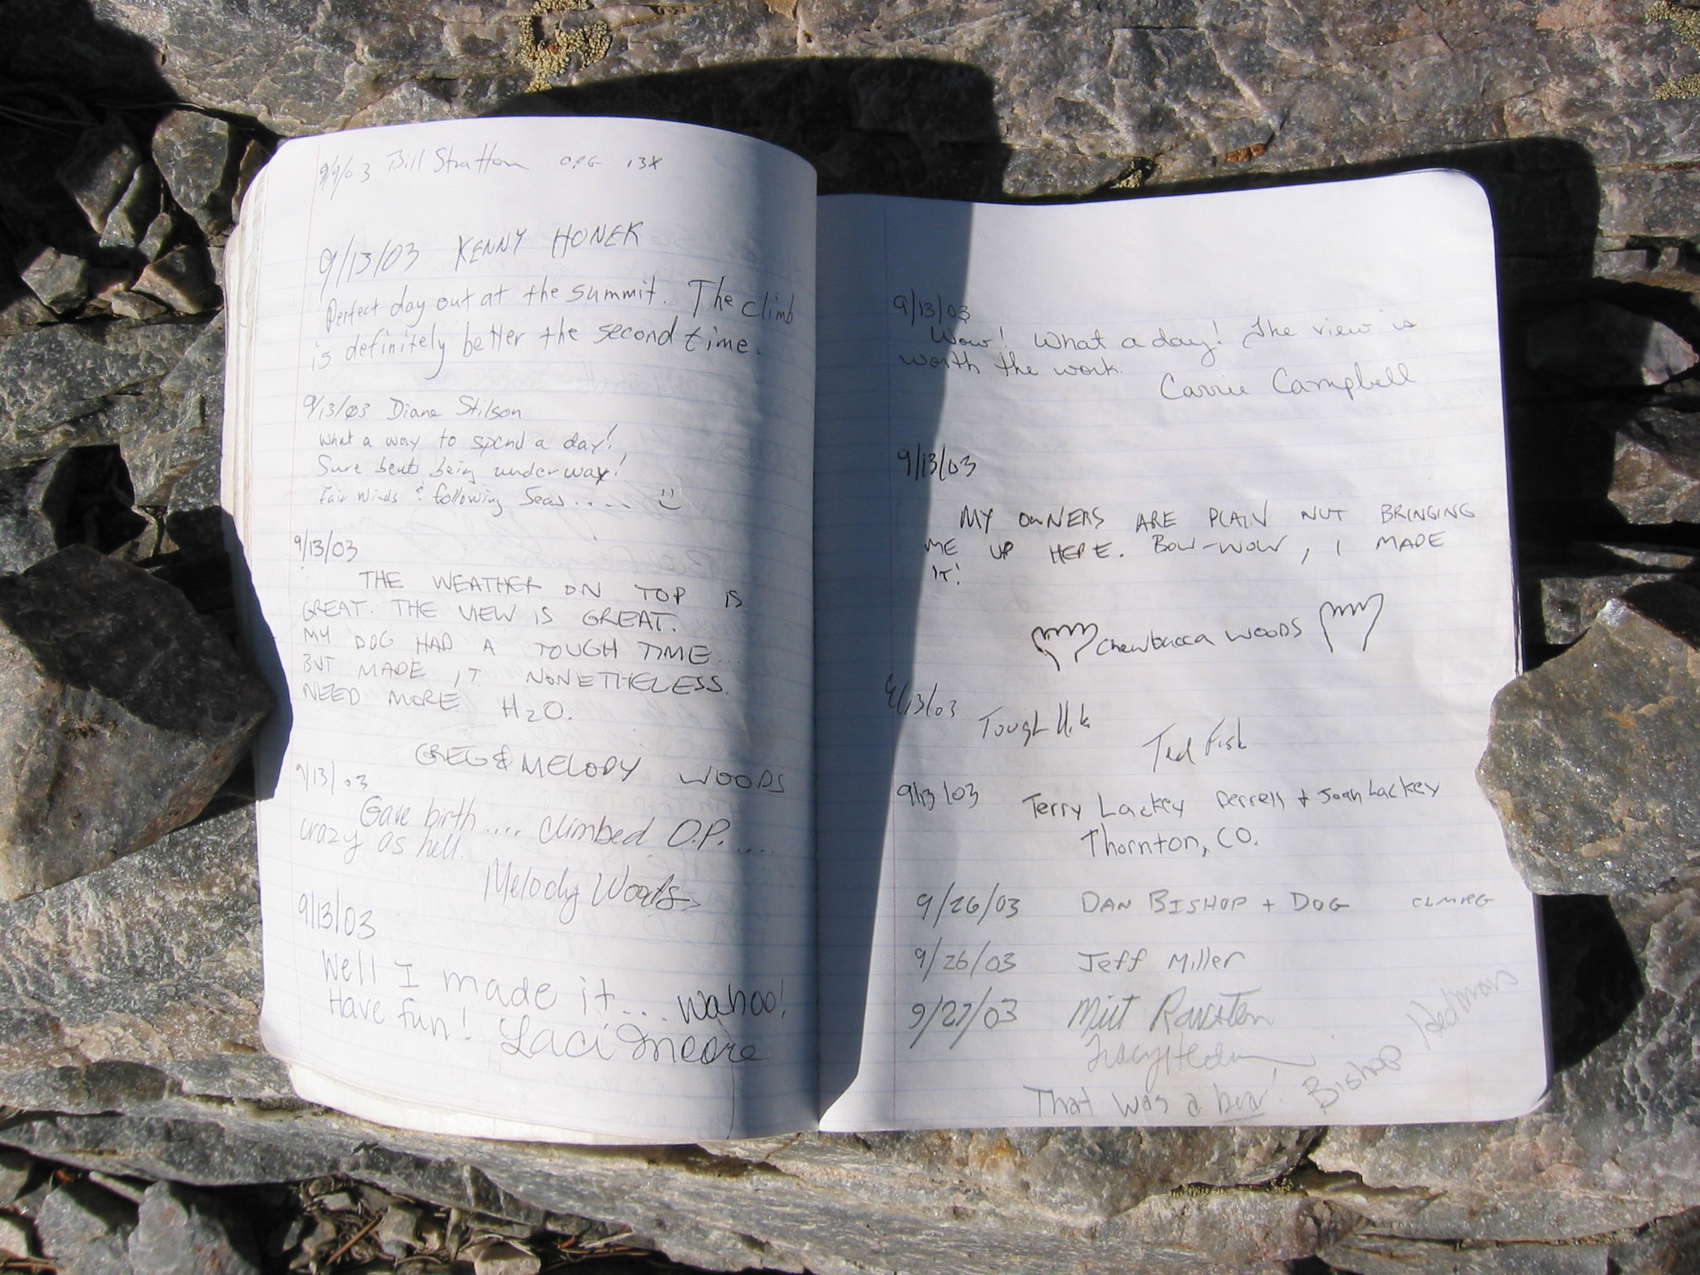 9/9/03 Bill Stratton OPG 13X
9/13/03 KENNY HONER
Perfect day out at the summit. The climb
is definitely better the second time.
9/13/03 Diane Stilson
What a way to spend a day!
Sure beats being underway!
Fair winds & following Seas..... :)
9/13/03
THE WEATHER ON TOP IS
GREAT. THE VIEW IS GREAT.
MY DOG HAD A TOUGH TIME...
BUT MADE IT NONETHELESS.
NEED MORE H2O.
GREG & MELODY WOODS
9/13/03
Gave birth.... climbed O.P.....
crazy as hell.
Melody Woods
9/13/03
Well I made it... wahoo!
Have fun! Laci Moore
9/13/03
Wow! What a day! The view is
worth the work.
Carrie Campbell
9/13/03
MY OWNERS ARE PLAIN NUT BRINGING
ME UP HERE. BOW-WOW, I MADE
IT!
Chewbacca WOODS
9/13/03 Tough
Ted Fish
9/13/03 Terry Lackey Derrell + Joan Lackey
Thornton, CO.
9/26/03 DAN BISHOP + DOG CLMRG
9/26/03 Jeff Miller
9/27/03
Tracy
That was a bear! Bishop